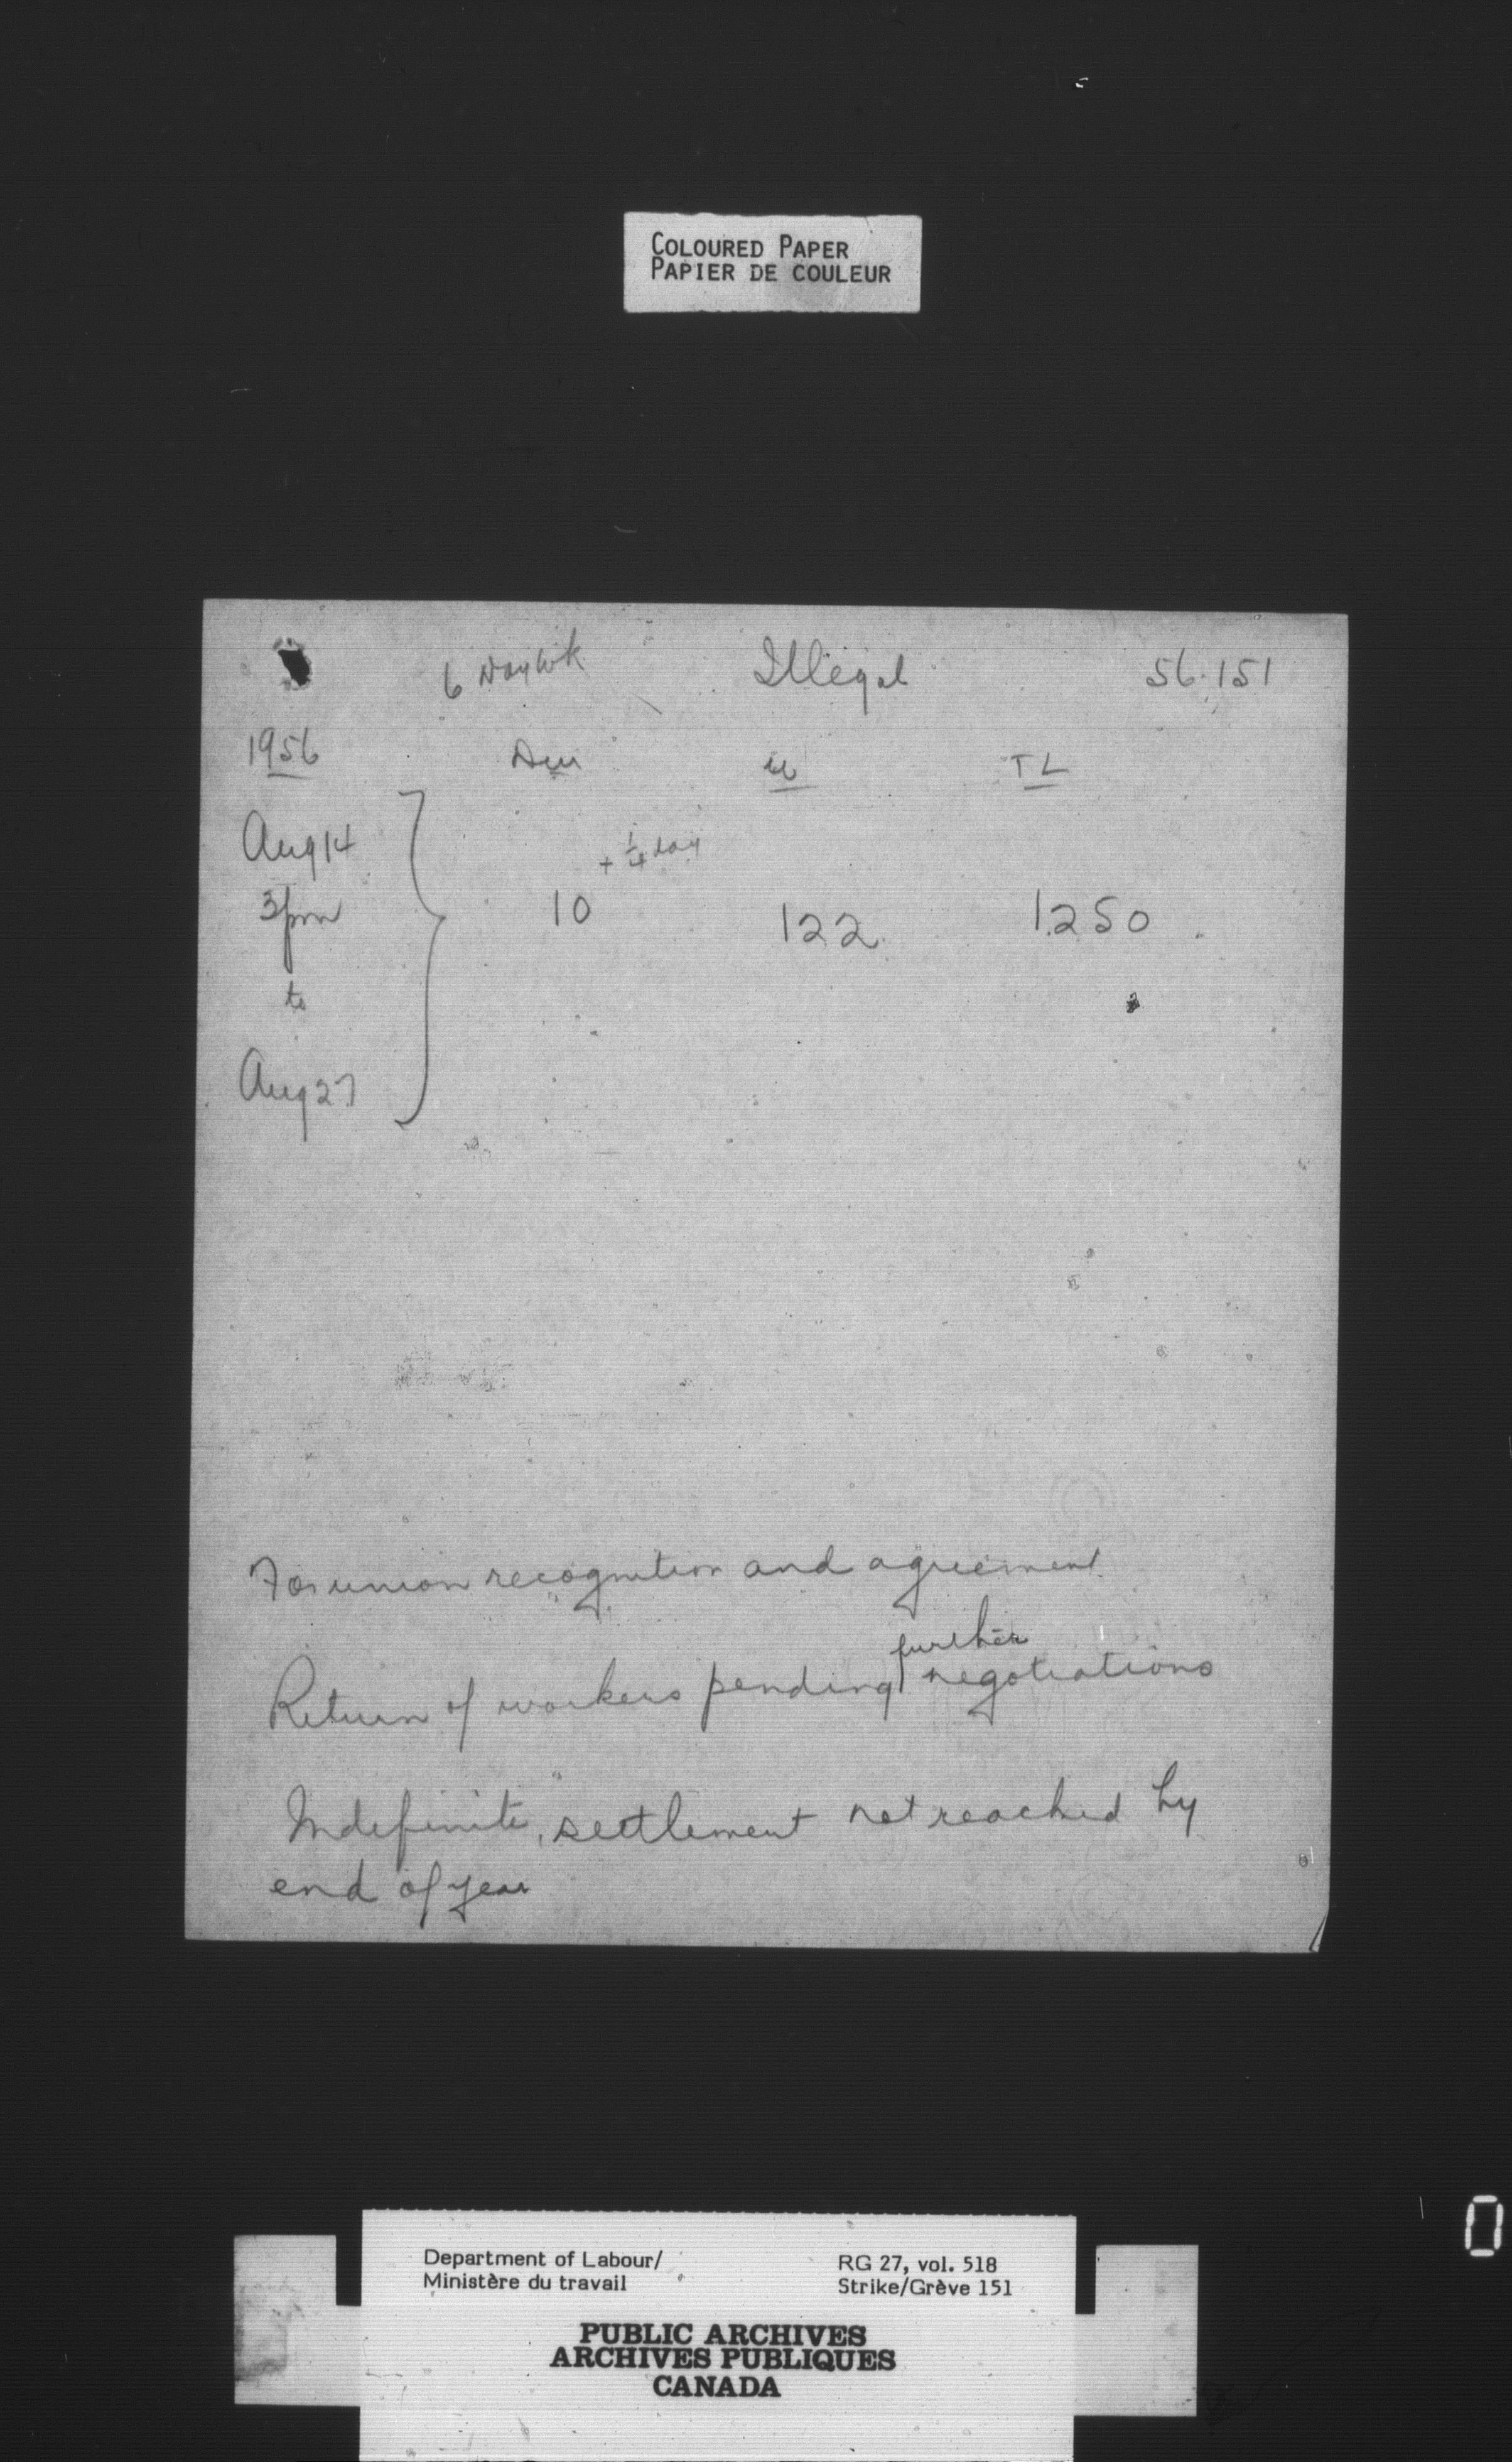 COLOURED PAPER
PAPIER DE COULEUR
6 Day Wk Illegal 56-151
1956 Dur W TL
Aug 14
+ 1/4 day
3pm 10 122 1250
to
Aug 27
For union recognition and agreement.
further
Return of workers pending negotiations
Indefinite, settlement not reached by
end of year
Department of Labour/ RG 27, vol. 518
Ministère du travail Strike/Grève 151
PUBLIC ARCHIVES
ARCHIVES PUBLIQUES
CANADA
0